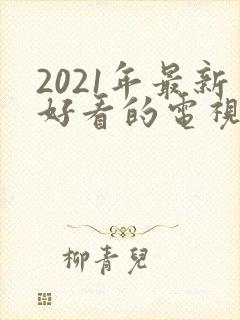 2021年最新
好看的電視
柳青兒